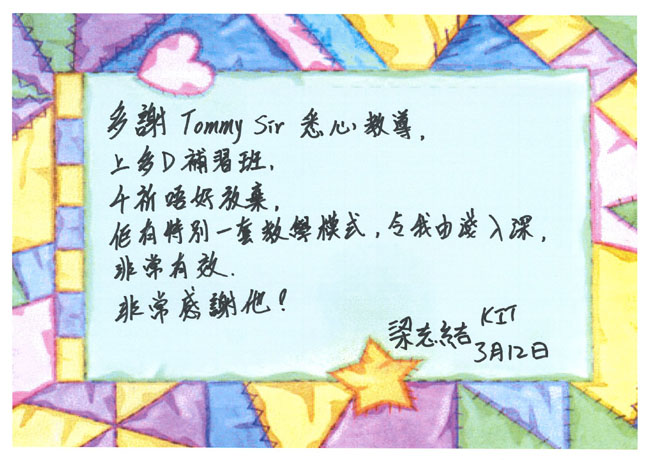 多謝 Tommy Sir 悉心教導,
上多D補習班,
千祈唔好放棄,
佢有特別一套教學模式,令我由淺入深,
非常有效.
非常感謝他!
梁志結 KIT
3月12日